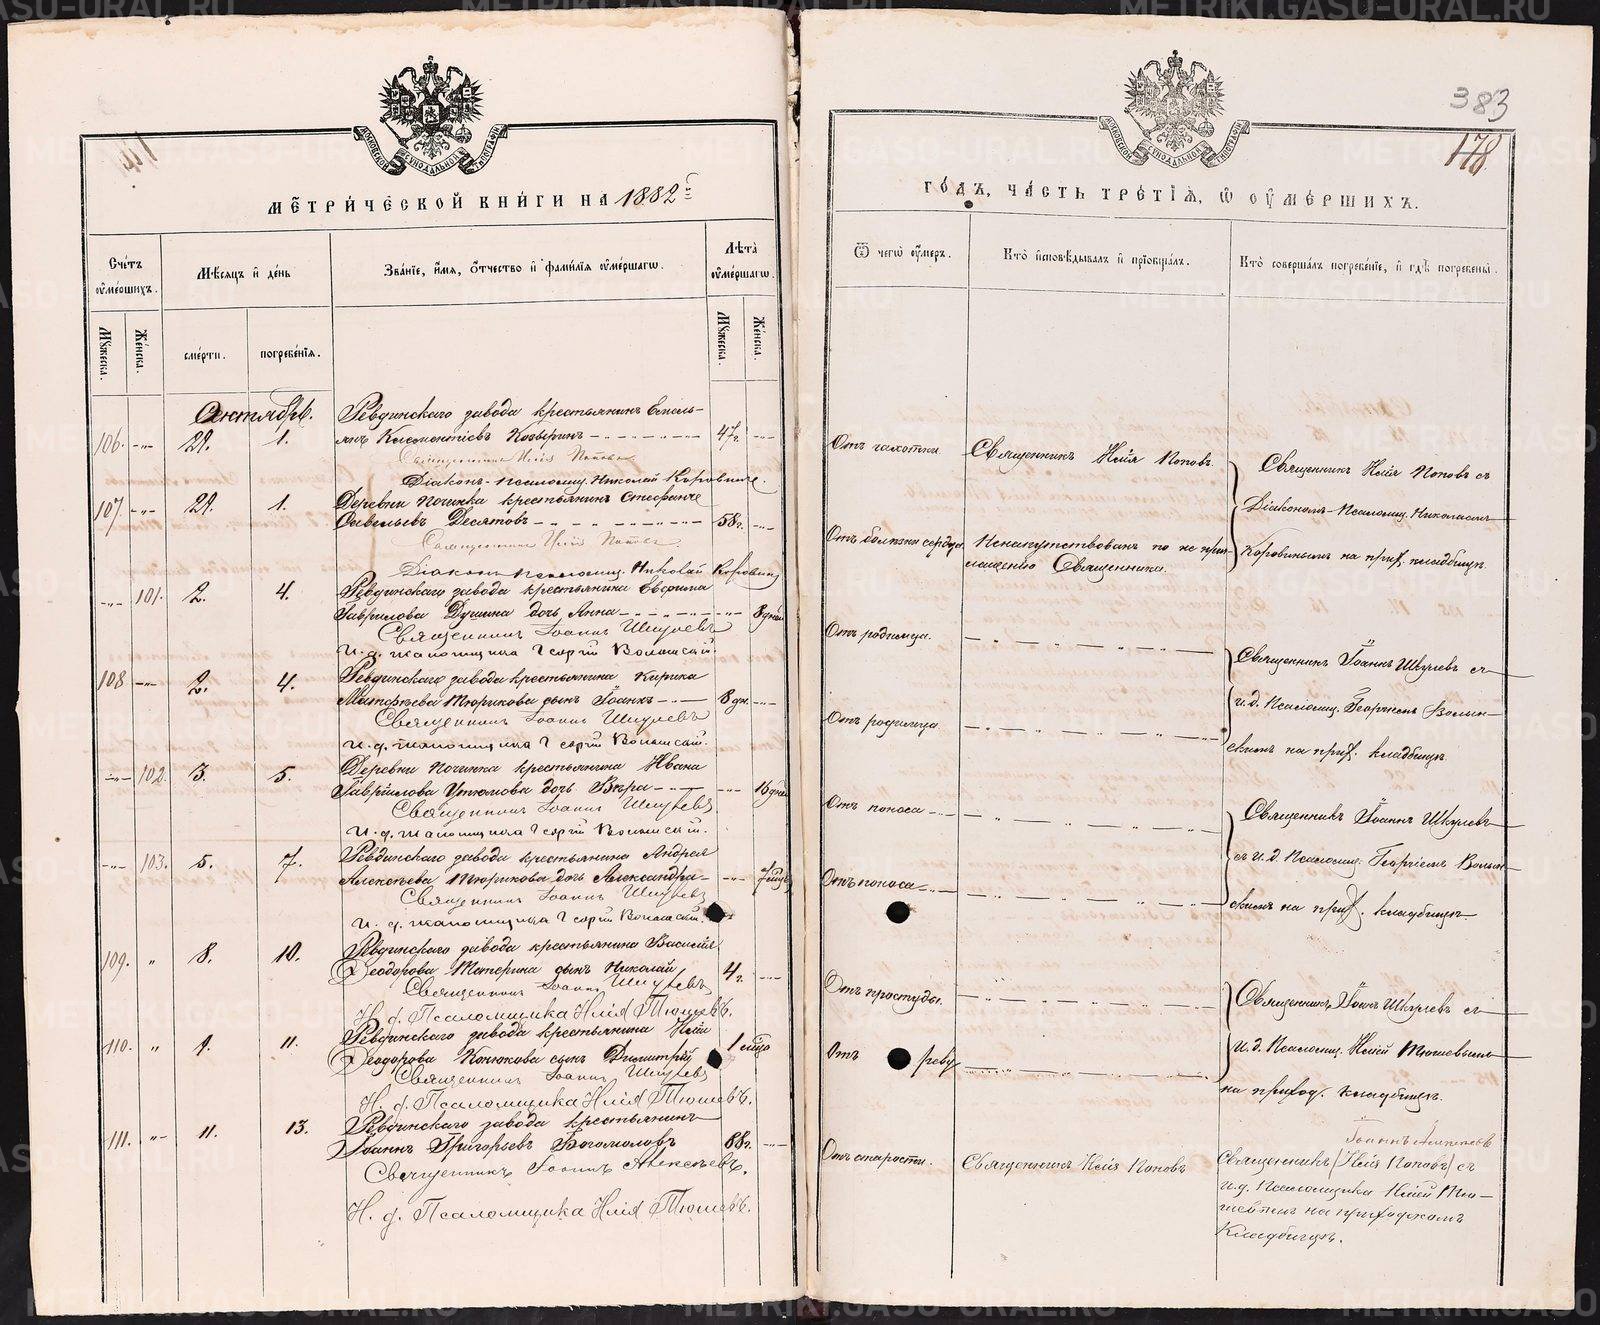 383
178
МЕТРИЧЕСКОЙ КНИГИ НА 1882 г.
ГОДЪ, ЧАСТЬ ТРЕТІЯ, Ѡ ОУМЕРШИХЪ.
Счетъ оумершихъ.
Мѣсяцъ и день
Званіе, имя, отчество и фамилія оумершагѡ.
Лѣта оумершагѡ.
Ѿ чегѡ оумеръ.
Кто исповѣдывалъ и пріобщалъ.
Кто совершалъ погребеніе, и гдѣ погребены.
Мужеска.
Женска.
смерти.
погребенія.
Мужеска.
Женска.
Сентябрь.
Ревдинскаго завода крестьянинъ Емель-
106. 29. 1. янъ Климентіевъ Козыринъ 47 г.
Отъ чахотки
Священникъ Илія Поповъ.
Священникъ Илія Поповъ съ
Священникъ Илія Поповъ
Діаконъ-псаломщ. Николай Коровинъ.
107. 29. 1. Деревни Починка крестьянинъ Стефанъ
Савельевъ Десятовъ 58 г.
Діакономъ-Псаломщ. Николаемъ
Отъ болѣзни сердца.
Ненапутствованъ по не при-
глашенію Священника.
Коровинымъ на прих. кладбищѣ.
Священникъ Илія Поповъ
Діаконъ псаломщ. Николай Коровинъ
101. 2. 4. Ревдинскаго завода крестьянина Евфима
Гаврилова Душина дочь Анна 8 дней
Отъ родимца.
Священникъ Іоаннъ Шкулевъ
и. д. псаломщика Георгій Волынскій.
108 2. 4. Ревдинскаго завода крестьянина Кирика
Матфеева Тюрикова сынъ Іоаннъ 8 дн.
Отъ родимца
Священникъ Іоаннъ Шкулевъ съ
и. д. Псаломщ. Георгіемъ Волын-
скимъ на прих. кладбищѣ.
Священникъ Іоаннъ Шкулевъ
и. д. псаломщика Георгій Волынскій.
102. 3. 5. Деревни Починка крестьянина Ивана
Гаврилова Утюмова дочь Вѣра дней
Отъ поноса
Священникъ Іоаннъ Шкулевъ
и. д. псаломщика Георгій Волынскій.
103. 5. 7. Ревдинскаго завода крестьянина Андрея
Алексѣева Тюрикова дочь Александра 7 мѣсц.
Отъ поноса
Священникъ Іоаннъ Шкулевъ
съ и. д. Псаломщ. Георгіемъ Волын-
скимъ на прих. кладбищѣ.
Священникъ Іоаннъ Шкулевъ
и. д. псаломщика Георгій Волынскій.
109. 8. 10. Ревдинскаго завода крестьянина Василія
Ѳеодорова Материна сынъ Николай 4 г.
Отъ простуды.
Священникъ Іоаннъ Шкулевъ
И. д. Псаломщика Илія Тюшевъ.
110. 9. 11. Ревдинскаго завода крестьянина Иліи
Ѳеодорова Конюкова сынъ Димитрій 1 мѣсц.
Отъ реву
Священникъ Іоаннъ Шкулевъ съ
и. д. Псаломщ. Иліей Тюшевымъ
на приход. кладбищѣ.
Священникъ Іоаннъ Шкулевъ
И. д. Псаломщика Илія Тюшевъ.
111. 11. 13. Ревдинскаго завода крестьянинъ
Іоаннъ Григорьевъ Богомоловъ 88 г.
Отъ старости.
Священникъ Илія Поповъ
Іоаннъ Алексѣевъ
Священникъ (Илія Поповъ) съ
и. д. Псаломщика Иліей Тю-
шевымъ на приходскомъ
кладбищѣ.
Священникъ Іоаннъ Алексѣевъ.
И. д. Псаломщика Илія Тюшевъ.
METRIKI.GASU-URAL.RU